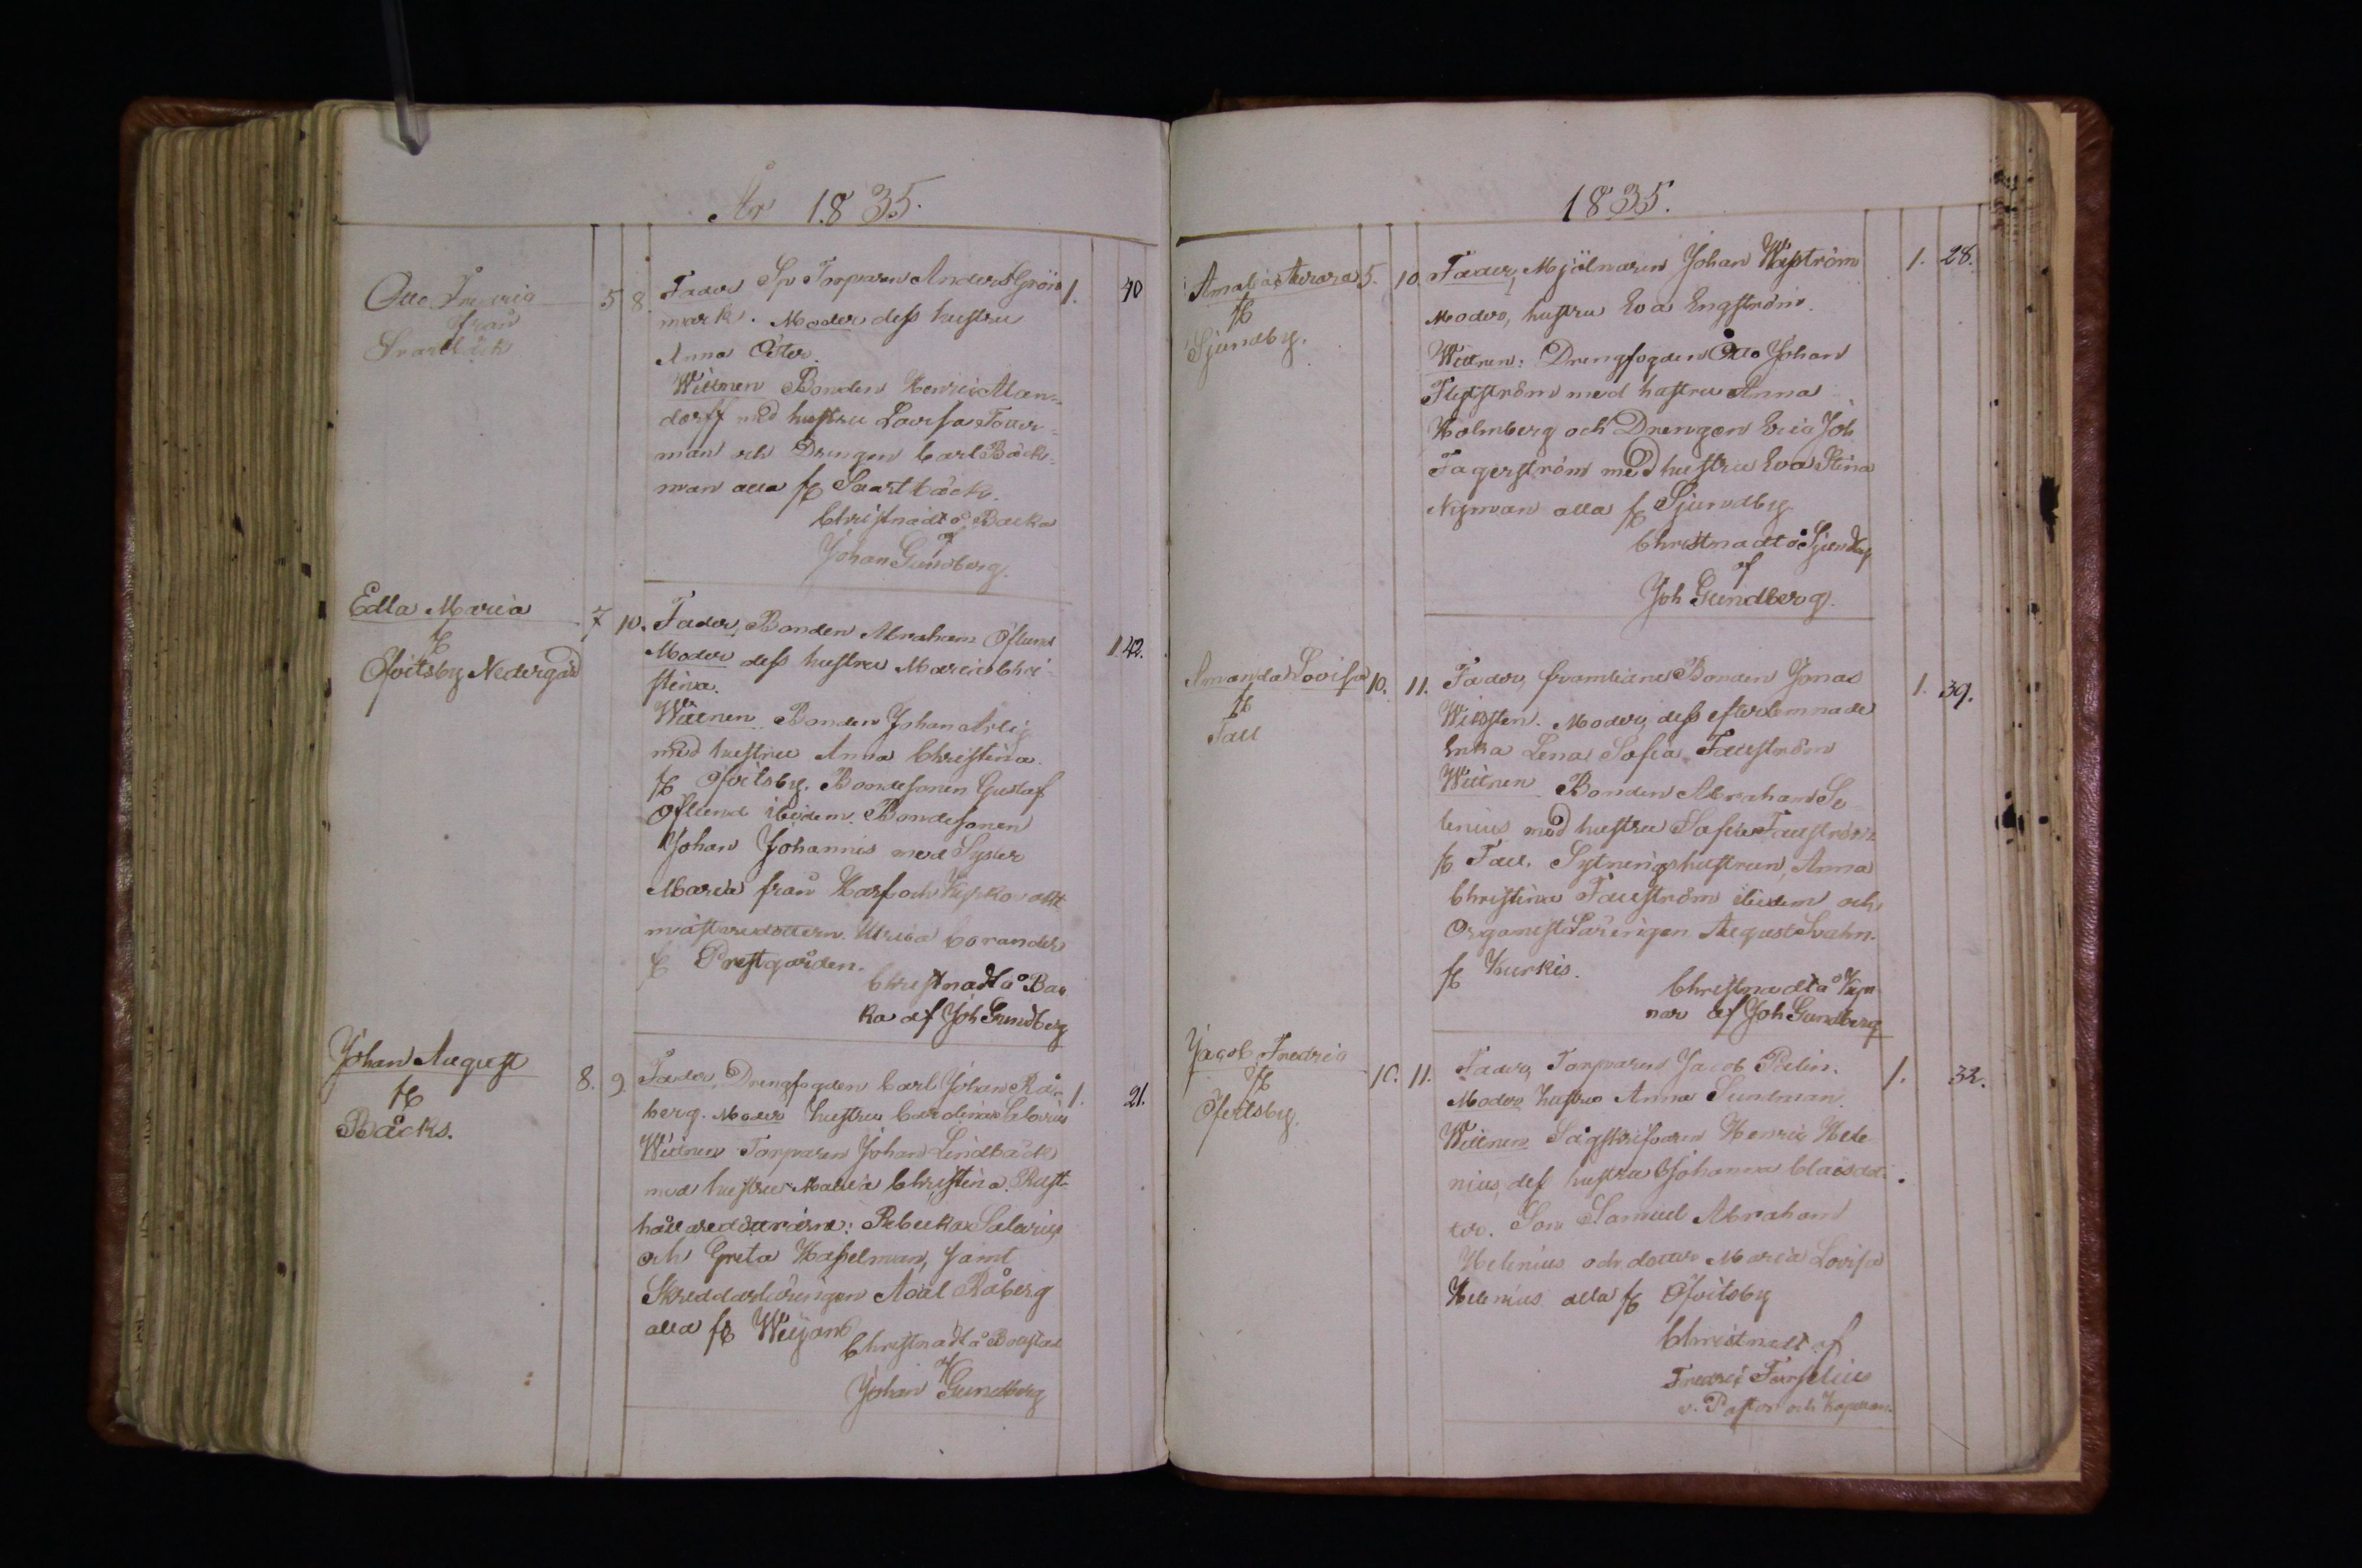 År 1835.
Otto Fredric
från
Svartbäck
5 8. Fader Sp Torparen Anders Grön 1. 40
mark. Moder dess hustru
Anna Öster.
Wittnen Bonden Henric Alan-
dorff med hustru Lovisa Tour-
man och Drengen Carl Bäck-
man alla fr Svartbäck.
Christnadt å Backa
af
Johan Gundberg.
Edla Maria
fr
Ofvitsby Nedergård
7 10. Fader, Bonden Abraham Öflund 1. 42.
Moder dess hustru Maria Chri-
stina.
Wittnen Bonden Johan Arlig
med hustru Anna Christina
fr Ofvitsby. Bondesonen Gustaf
Öflund ibidem. Bondesonen
Johan Johannis med Syster
Maria från Harf och Kyrkovakt
mästaredottern Ulrica Corander
fr Prestgården.
Christnadt å Bac
ka af Joh Gundberg
Johan August
fr
Bäcks.
8. 9. Fader, Drengfogden Carl Johan Rå- 1. 21.
berg. Moder hustru Carolina Salovius
Wittnen Torparen Johan Lindbäck
med hustru Maria Christina. Rust-
hållaredöttrarne: Rebecka Salovius
och Greta Hasselman, samt
Skreddarläringen Axel Råberg
alla fr Weijans
Christnadt å Boustad
af
Johan Gundberg
1835.
Amalia Aurora
fr
Sjundby.
5. 10. Fader, Mjölnaren Johan Wixström 1. 28.
Moder, hustru Eva Engström.
Wittnen: Drengfogden Otto Johan
Flytström med hustru Anna
Holmberg och Drengen Eric Joh
Fagerström med hustru Eva Stina
Nyman alla fr Sjundby
Christnadt å Sjundby
af
Joh Gundberg.
Amanda Lovisa
fr
Tall
10. 11. Fader, framlidne Bonden Jonas 1. 39.
Wicksten. Moder, dess efterlemnade
Enka Lena Sofia Tallström
Wittnen Bonden Abraham Se
lenius med hustru Sofia Tallström
fr Tall. Sytningshustrun, Anna
Christina Tallström ibidem och
Organist Läringen August Svahn.
fr Kurkis.
Christnadt å
nar af Joh Gundberg
Jacob Fredric
fr
Ofvitsby.
10. 11. Fader, Torparen Jacob Palin. 1. 32.
Moder hustru Anna Sundman.
Wittnen Sågskrifvaren Henric Hele
nius, dess hustru Johanna Claësdot-
ter. Son Samuel Abraham
Helenius och dotter Maria Lovisa
Helenius alla fr Ofvitsby
Christnadt af
Fredric Forselius
v. Pastor och Kapellan.